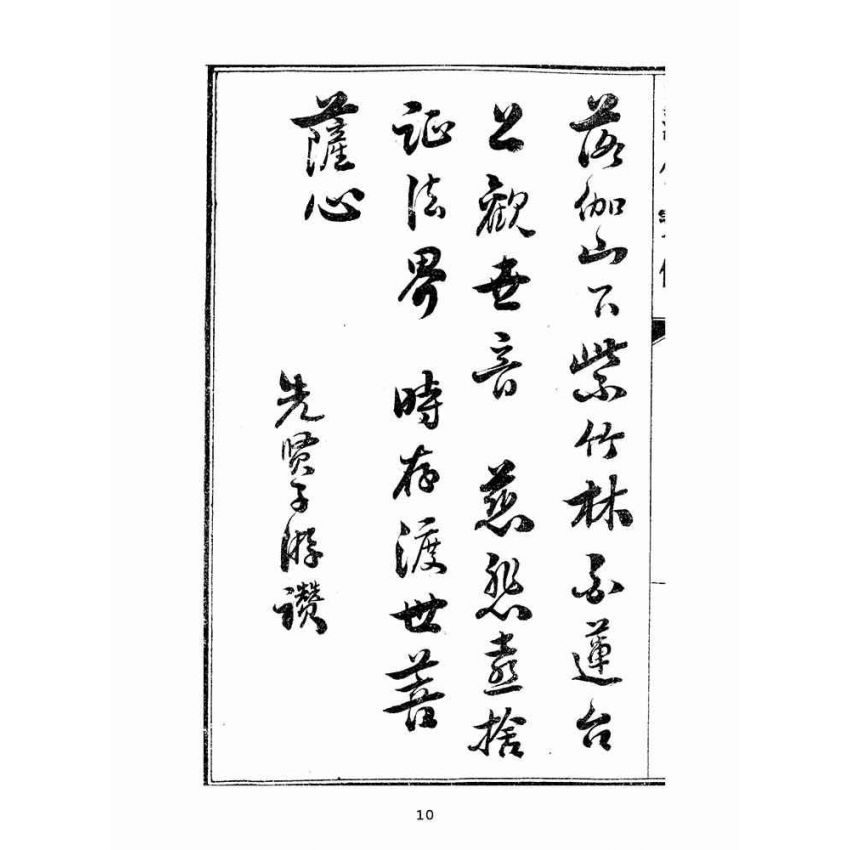 落伽山下紫竹林蓮台
上觀世音 慈悲喜捨
証法界 時存渡世菩
薩心
先贤子游讚
10